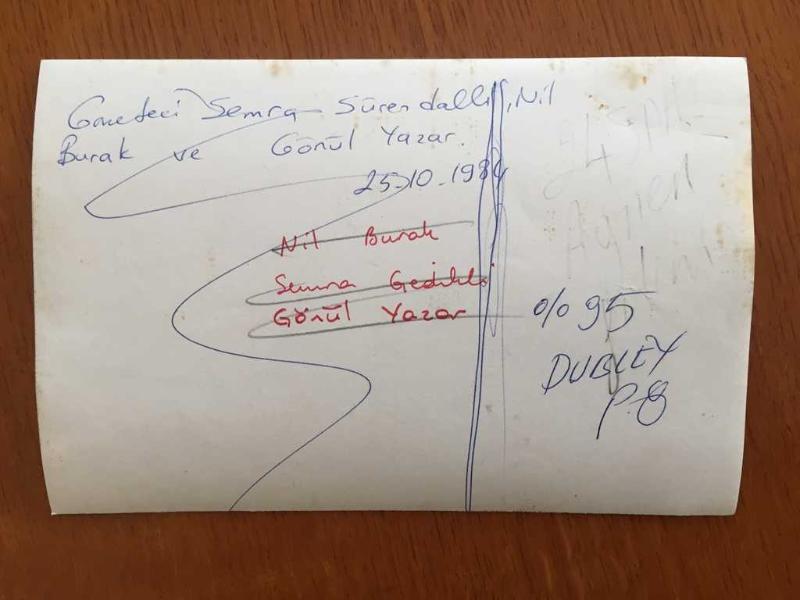 Gazeteci Semra Sürendallı, Nil
Burak ve Gönül Yazar.
25-10-1984
Nil Burak
Semra Gedikli
Gönül Yazar
% 95
DUBLEY
P.8